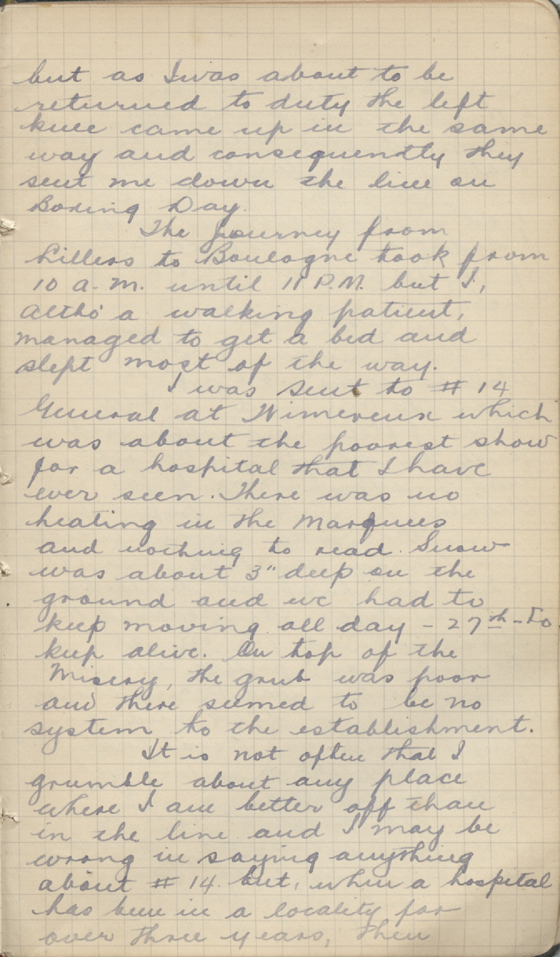 but as I was about to be
returned to duty the left
knee came up in the same
way and consequently they
sent me down the line on
Boxing Day.
The journey from
Lillers to Boulogne took from
10 A.M. until 11 P.M. but I,
altho' a walking patient,
managed to get a bed and
slept most of the way.
I was sent to # 14
General at Wimereux which
was about the poorest show
for a hospital that I have
ever seen. There was no
heating in the Marquees
and nothing to read. Snow
was about 3" deep on the
ground and we had to
keep moving all day - 27th - to
keep alive. On top of the
Misery, the grub was poor
and there seemed to be no
system to the establishment.
It is not often that I
grumble about any place
where I am better off than
in the line and I may be
wrong in saying anything
about # 14 but, when a hospital
has been in a locality for
over three years, then